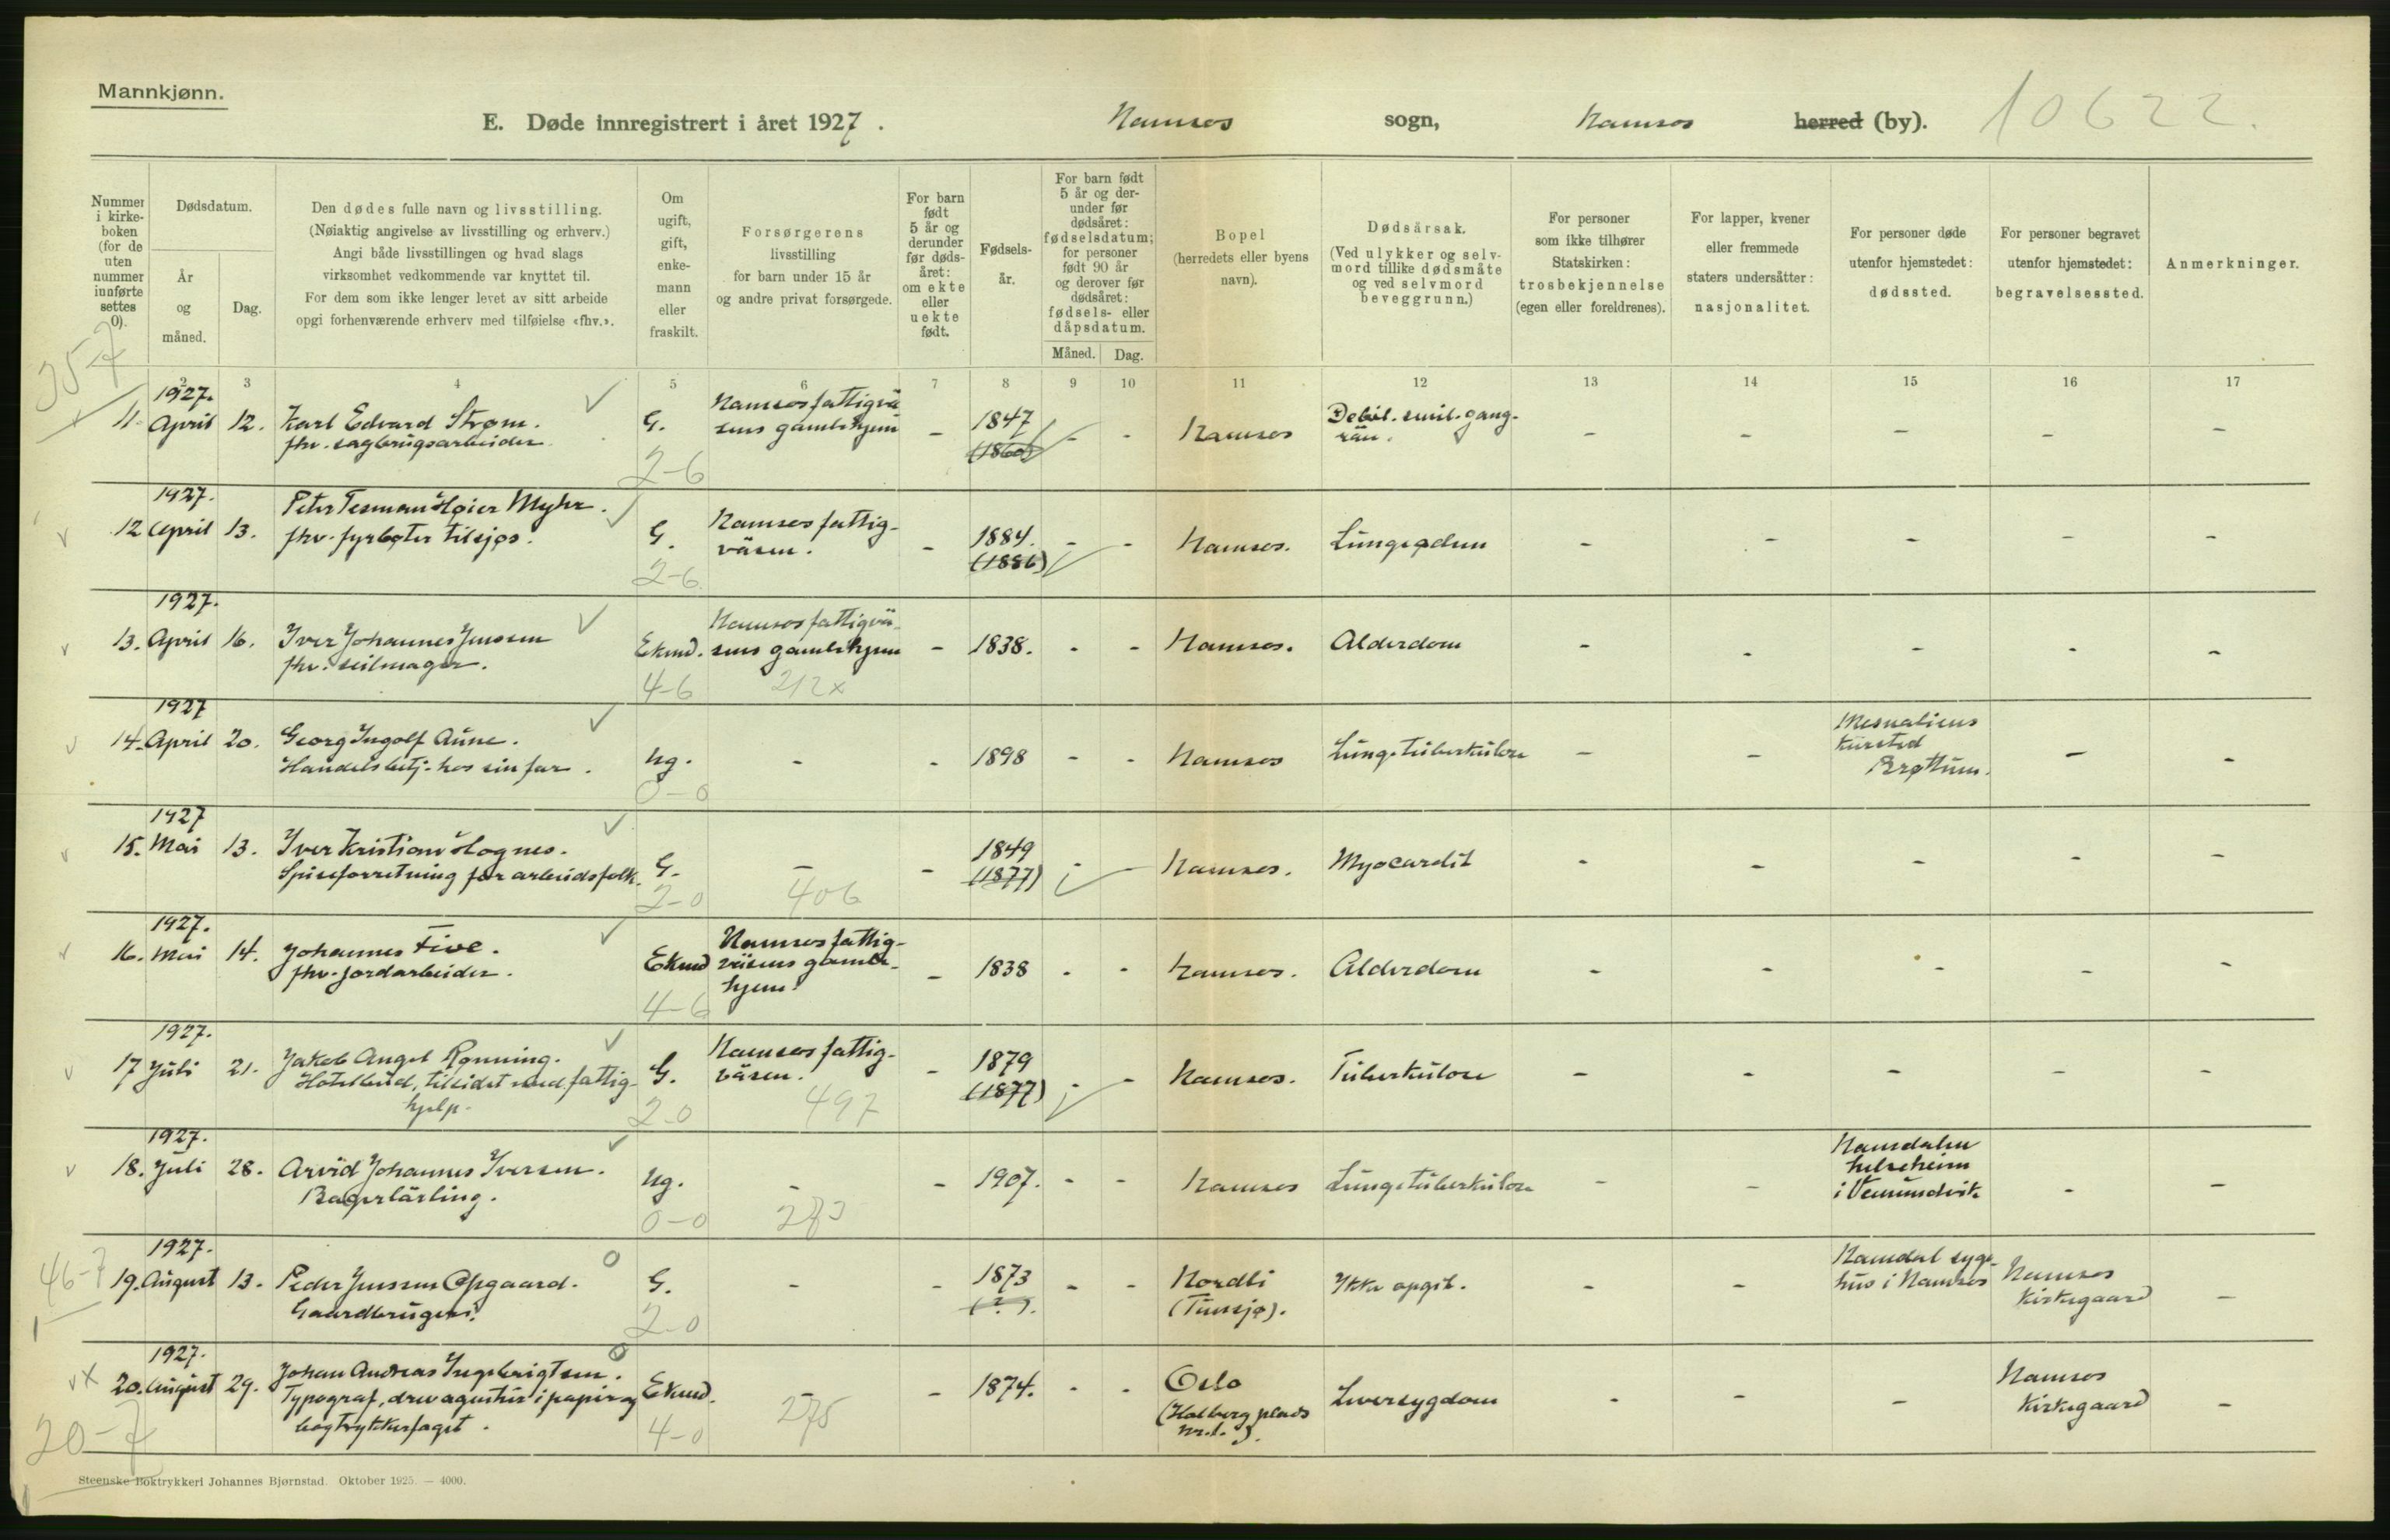 Mannkjønn.
E. Døde innregistrert i året 1927. Namsos sogn, Namsos herred (by). 10622.
Nummer i kirkeboken (for de uten nummer innførte settes 0).
Dødsdatum.
År og måned.
Dag.
Den dødes fulle navn og livsstilling.
(Nøiaktig angivelse av livsstilling og erhverv.)
Angi både livsstillingen og hvad slags
virksomhet vedkommende var knyttet til.
For dem som ikke lenger levet av sitt arbeide
opgi forhenværende erhverv med tilføielse «fhv.».
Om ugift, gift, enkemann eller fraskilt.
Forsørgerens
livsstilling
for barn under 15 år
og andre privat forsørgede.
For barn født 5 år og derunder før dødsåret: om ekte eller uekte født.
Fødselsår.
For barn født 5 år og derunder før dødsåret: fødselsdatum; for personer født 90 år og derover før dødsåret: fødsels- eller dåpsdatum.
Måned. Dag.
Bopel
(herredets eller byens
navn).
Dødsårsak.
(Ved ulykker og selvmord tillike dødsmåte og ved selvmord beveggrunn.)
For personer
som ikke tilhører
Statskirken:
trosbekjennelse
(egen eller foreldrenes).
For lapper, kvener
eller fremmede
staters undersåtter:
nasjonalitet.
For personer døde
utenfor hjemstedet:
dødssted.
For personer begravet
utenfor hjemstedet:
begravelsessted.
Anmerkninger.
2 3 4 5 6 7 8 9 10 11 12 13 14 15 16 17
35-7
1927.
11. April 12. Karl Edvard Strøm. G. Namsos fattigvä- - 1847 - - Namsos Debil. senil. gang- - - - - -
fhv. sagbrugsarbeider sens gamlehjem (1860) rän.
2-6
1927.
12 April 13. Peter Tesman Høier Myhr. G. Namsos fattig- - 1884. - - Namsos. Lungeødem - - - - -
fhv. fyrbøter tilsjøs. väsen. (1886)
2-6
1927.
13. April 16. Iver Johannes Jenssen Ekmd. Namsos fattigvä- - 1838. - - Namsos. Alderdom - - - - -
fhv. seilmager. sens gamlehjem
4-6 212x
1927
14. April 20. Georg Ingolf Aune. Ug. - - 1898 - - Namsos Lungetuberkulose - - Mesnaliens - -
Handelsbetj. hos sin far. kursted
Brøttum.
0-0
1927
15. Mai 13. Iver Kristian Hognes. G. - - 1849 - - Namsos. Myocardit - - - - -
Spiseforretning for arbeidsfolk. (1877)
2-0 406
1927.
16. Mai 14. Johannes Five. Ekmd Namsos fattig- - 1838 - - Namsos. Alderdom - - - - -
fhv. jordarbeider. väsens gamle-
hjem.
4-6
1927.
17 Juli 21. Jakob Angel Rønning. G. Namsos fattig- - 1879 - - Namsos. Tuberkulose - - - - -
Hotelbud, tilsidst med fattig- väsen. (1877)
hjelp.
2-0 497
1927.
18. Juli 28. Arvid Johannes Iversen. Ug. - - 1907. - - Namsos Lungetuberkulose - - Namdalen - -
Bagerlärling. helseheim
i Vemundvik
0-0 283
46-7
1927.
19. August 13. Peder Jenssen Opgaard. G. - - 1873 - - Nordli Ikke opgit. - - Namdal syge- Namsos -
Gaardbruger. (?). (Tunsjø). hus i Namsos Kirkegaard
2-0
1927.
20. August 29. Johan Andreas Ingebrigtsen. Ekmd. - - 1874. - - Oslo Leversygdom - - - Namsos -
Typograf, drev agentur i papir og (Holberg plads Kirkegaard
bogtrykkerfaget. nr. 1.).
4-0 275
20-7
Steenske Boktrykkeri Johannes Bjørnstad. Oktober 1925. — 4000.